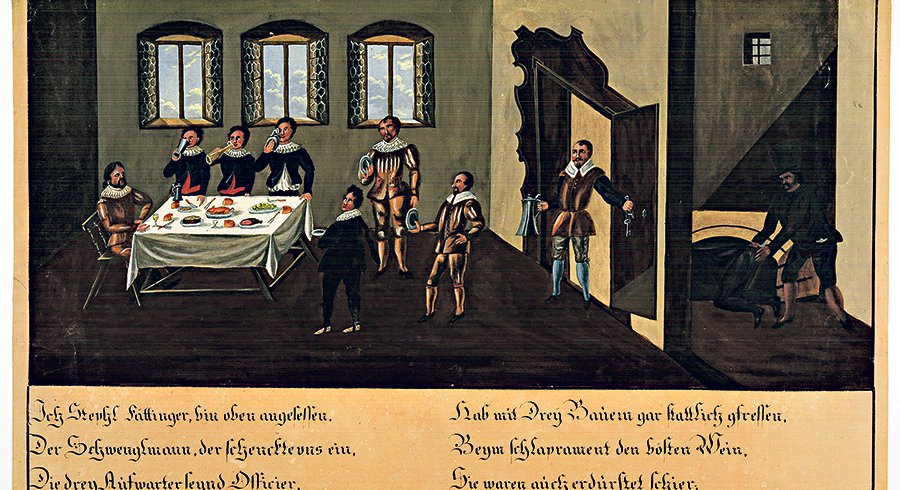 Ich Stephl Fättinger, bin oben angesessen,
Hab mit Drey Bauern gar stattlich gfressen,
Der Schwenglmann, der schenckte uns ein,
Beym schlaprament den bösten Wein,
Die drey Aufwarter seynd Officier,
Sie waren auch erdürstet schier;